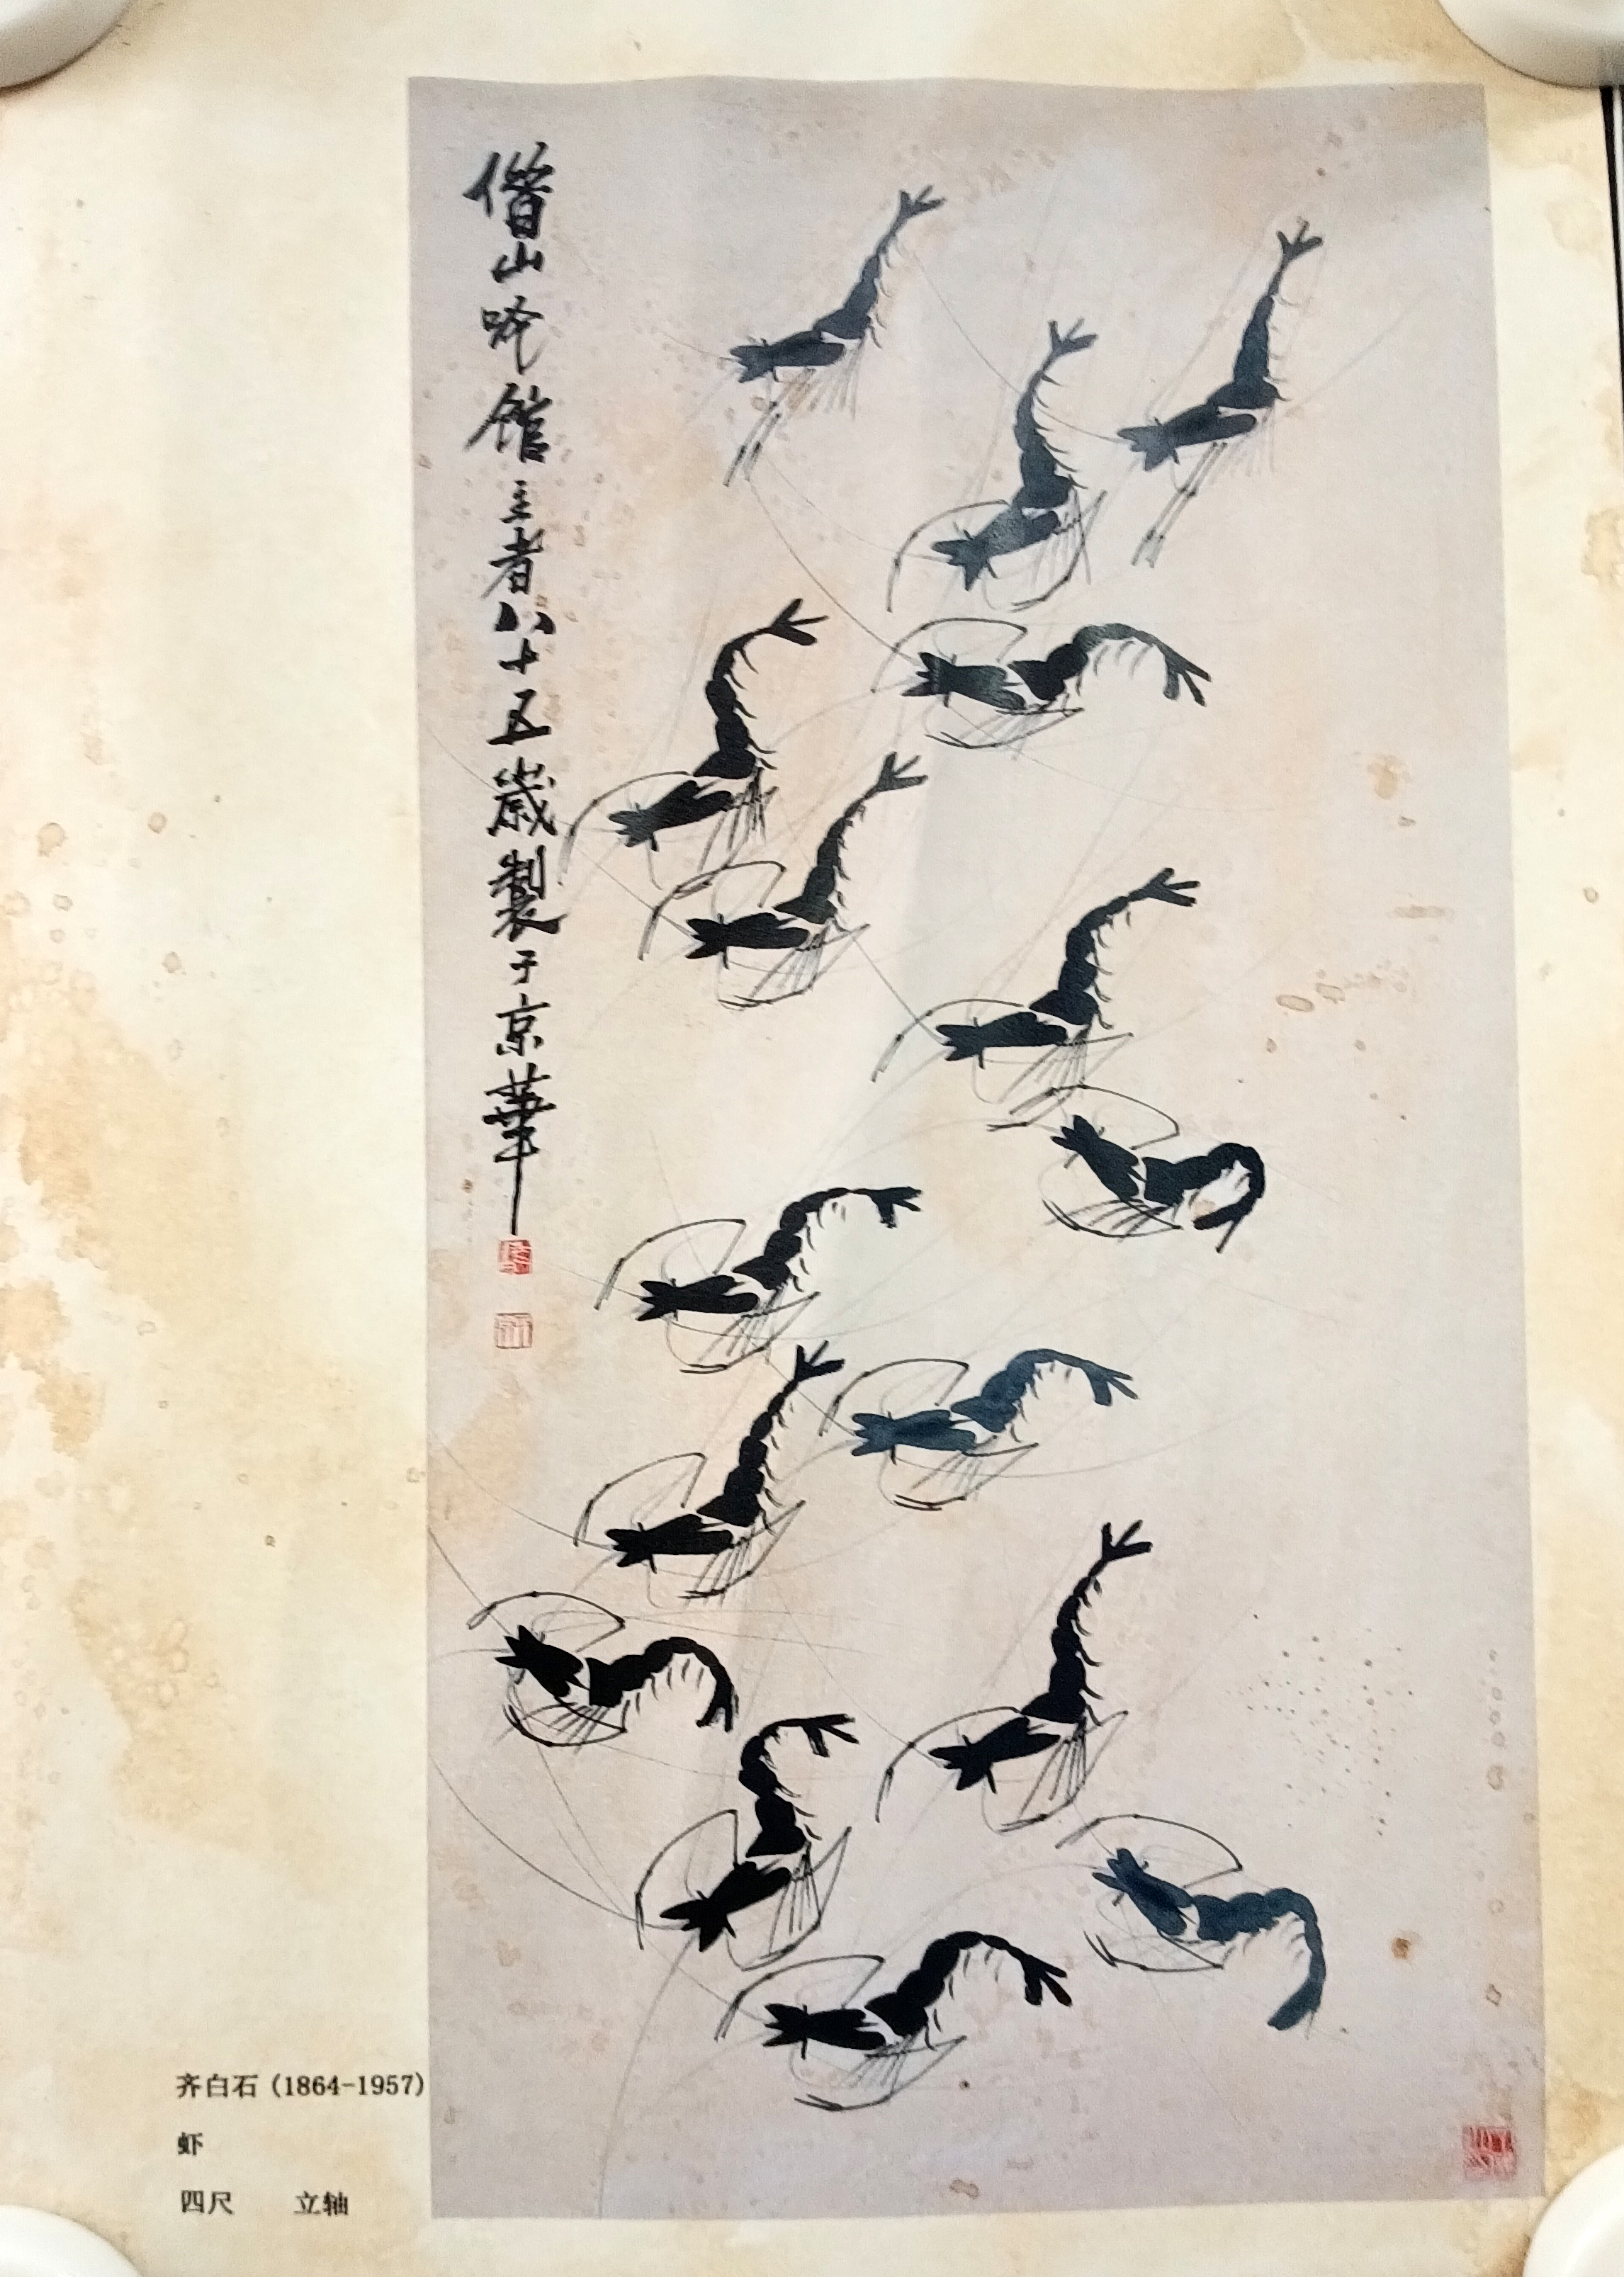 借山吟馆主者八十五岁製于京華
齐白石 (1864-1957)
虾
四尺 立轴